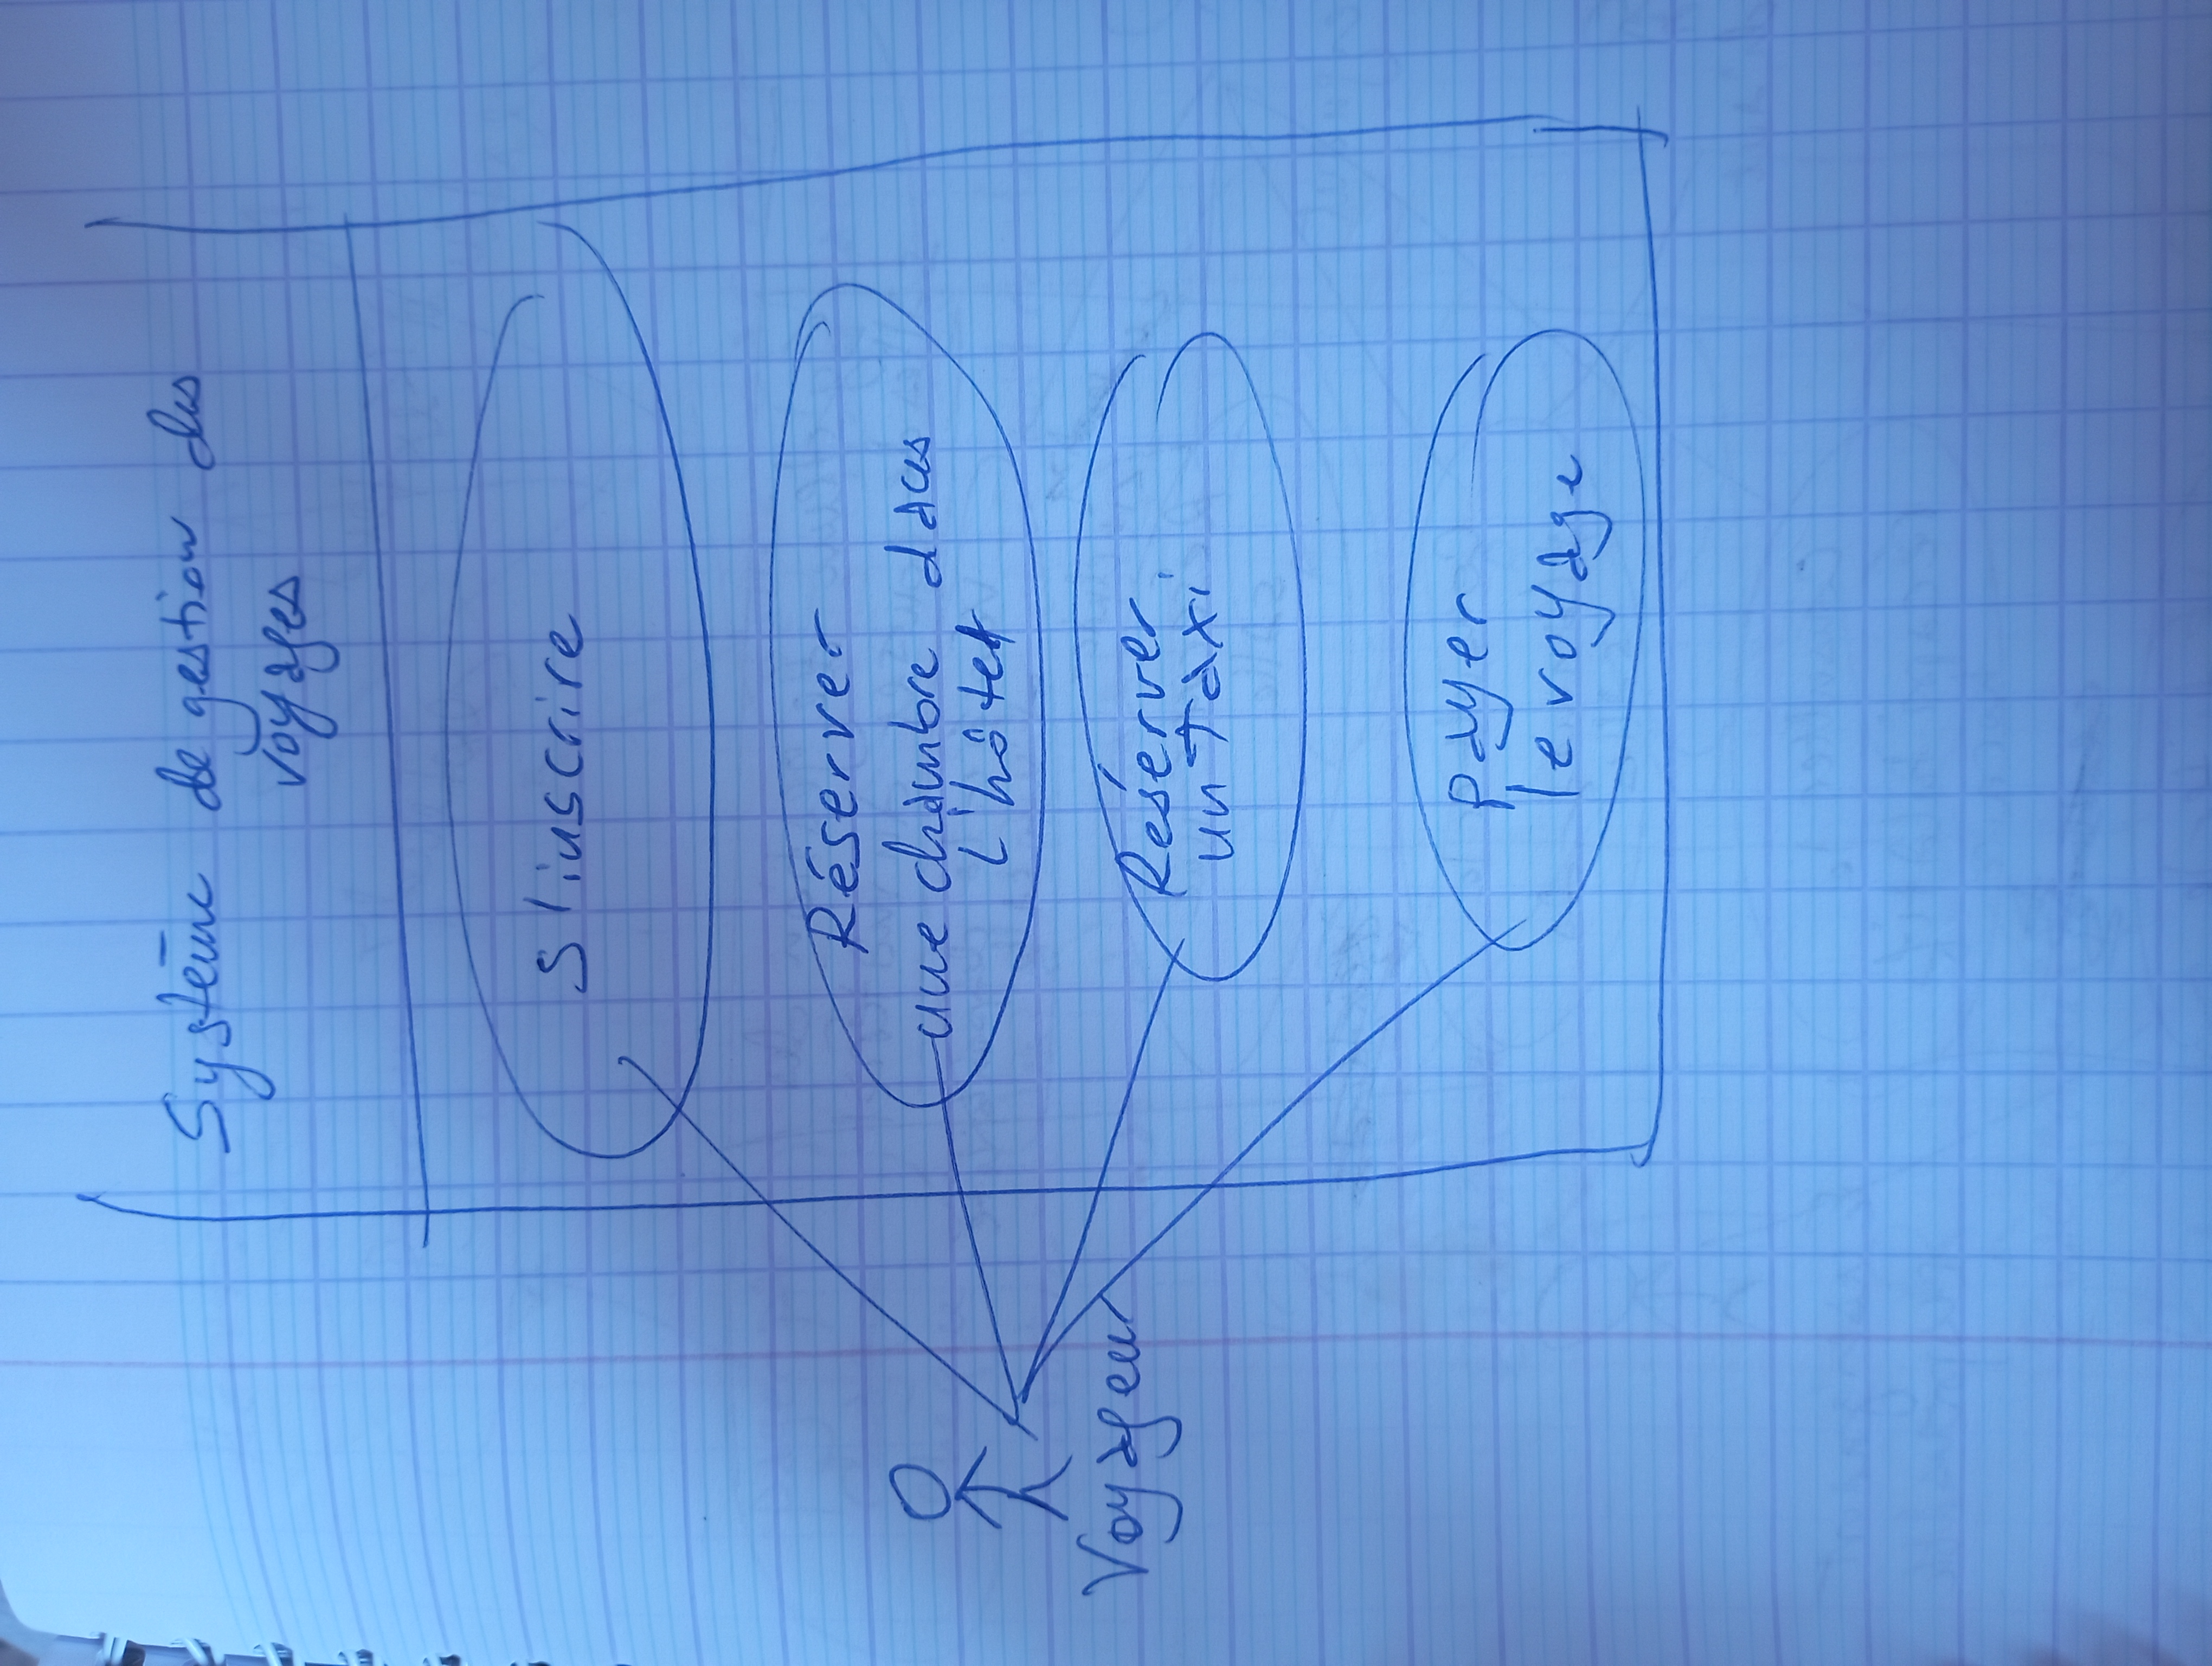 Système de gestion des
voyages
S'inscrire
Réserver
une chambre dans
l'hôtel
Voyageur
Réserver
un Taxi
payer
le voyage